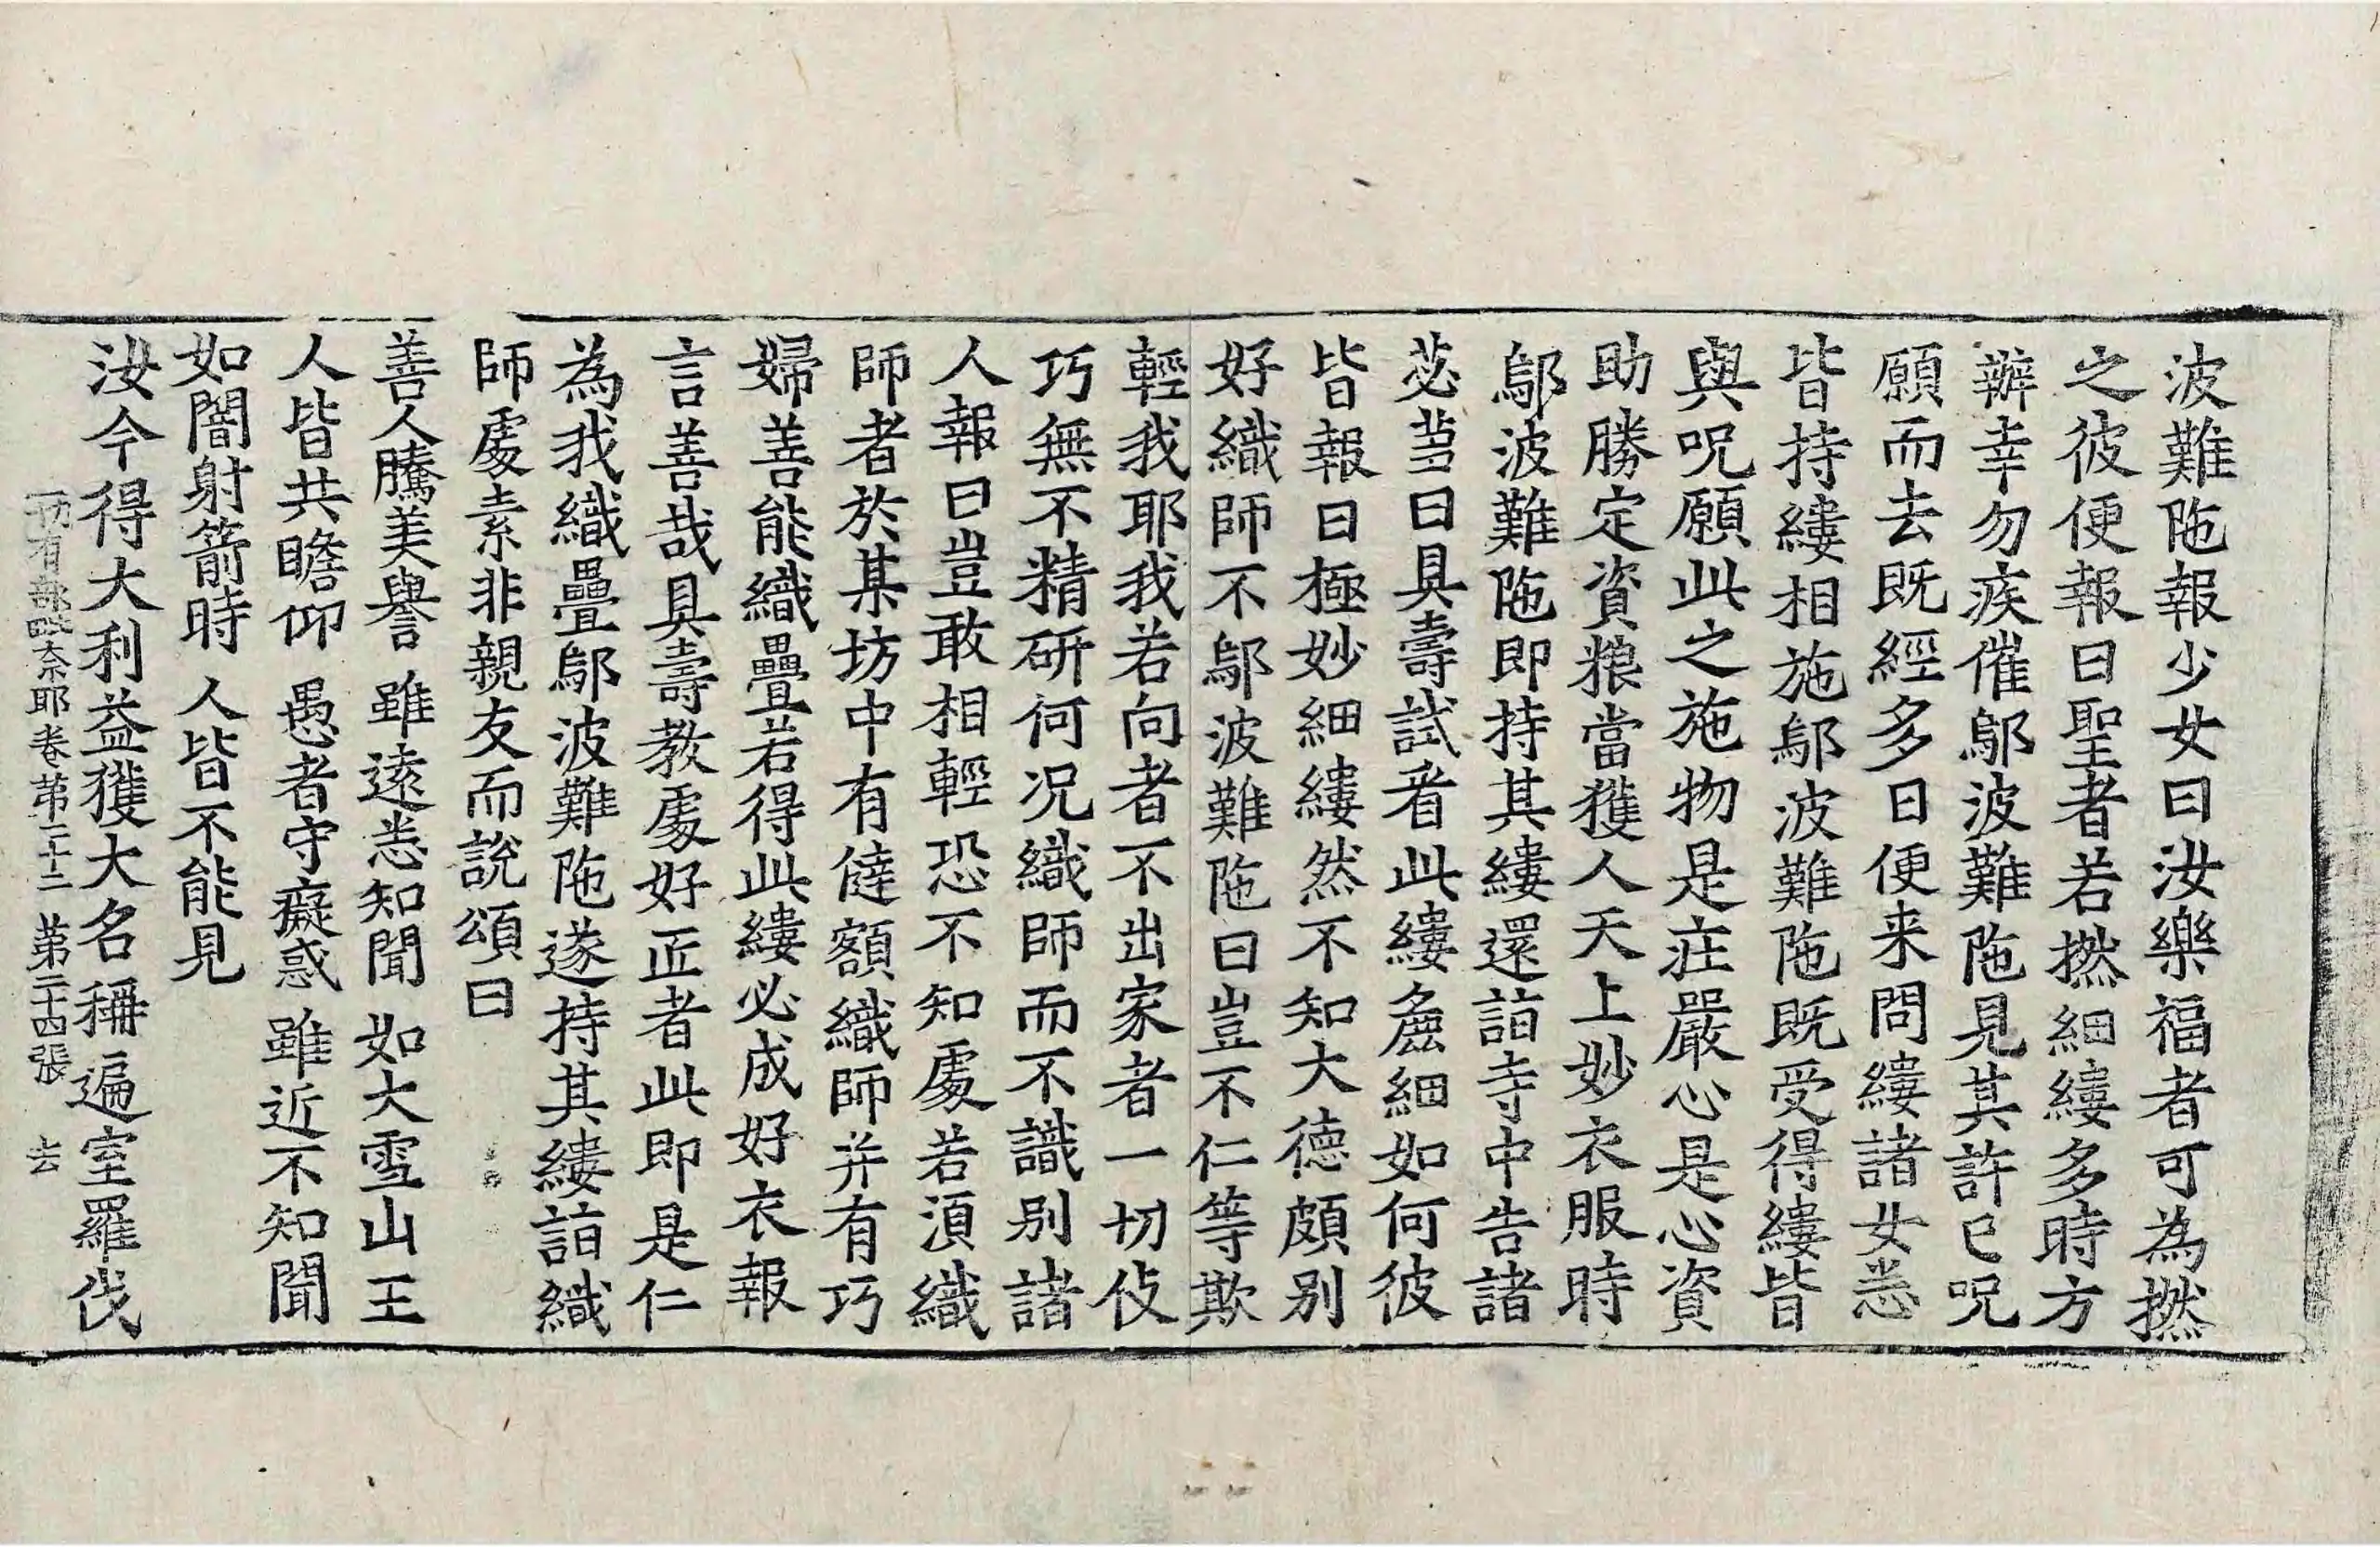 波難陁報少女曰汝樂福者可為撚
之彼便報曰聖者若撚細縷多時方
辦幸勿疾催鄔波難陁見其許已呪
願而去既經多日便来問縷諸女悉
皆持縷相施鄔波難陁既受得縷皆
與呪願此之施物是莊嚴心是心資
助勝定資粮當獲人天上妙衣服時
鄔波難陁即持其縷還詣寺中告諸
苾芻曰具壽試看此縷麁細如何彼
皆報曰極妙細縷然不知大德頗別
好織師不鄔波難陁曰豈不仁等欺
輕我耶我若向者不出家者一切伎
巧無不精研何况織師而不識别諸
人報曰豈敢相輕恐不知處若湏織
師者於某坊中有㒓額織師并有巧
婦善能織疊若得此縷必成好衣報
言善哉具壽教處好正者此即是仁
為我織疊鄔波難陁遂持其縷詣織
師處素非親友而說頌曰
善人騰美譽 雖遠悉知聞 如大雪山王
人皆共瞻仰 愚者守癡惑 雖近不知聞
如闇射箭時 人皆不能見
汝今得大利益獲大名稱遍室羅伐
一切有部毗奈耶卷第二十二 第二十四張 去